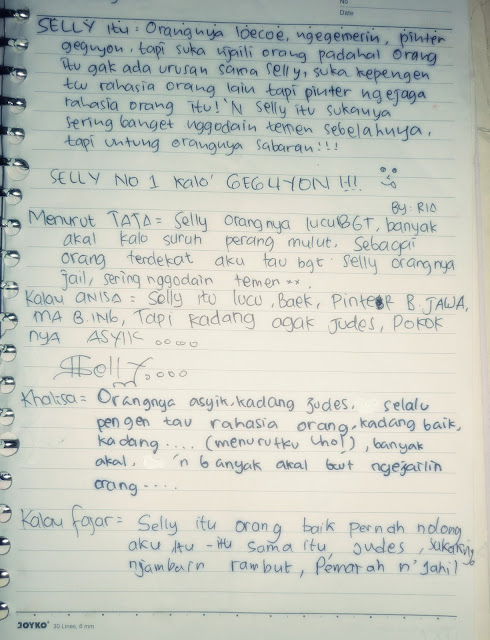 No
Date
SELLY itu : Orangnya loecoe, ngegemesin, pinter
geguyon, tapi suka njaili orang padahal orang
itu gak ada urusan sama selly, suka kepengen
tau rahasia orang lain tapi pinter ngejaga
rahasia orang itu! 'N Selly itu sukanya
sering banget nggodain temen sebelahnya,
tapi untung orangnya sabaran!!!
SELLY NO 1 kalo' GEGUYON !!!!
By: RIO
Menurut TATA = Selly orangnya lucuBGT, banyak
akal kalo suruh perang mulut. Sebagai
orang terdekat aku tau bgt selly orangnya
jail, sering nggodain temen **.
Kalau ANISA = Selly itu lucu, Baek, Pinter B.JAWA,
MA B.ING, Tapi kadang agak Judes, Pokok
nya ASYIIK ....
Selly....
Khalisa = Orangnya asyik, kadang judes, selalu
pengen tau rahasia orang, kadang baik,
kadang .... (menurutku lho!), banyak
akal, 'n banyak akal buat ngejailin
orang ....
Kalau fajar = Selly itu orang baik pernah nolong
aku itu-itu sama itu, Judes,
rambut, Pemarah n' Jahil
JOYKO 30 Lines, 8 mm